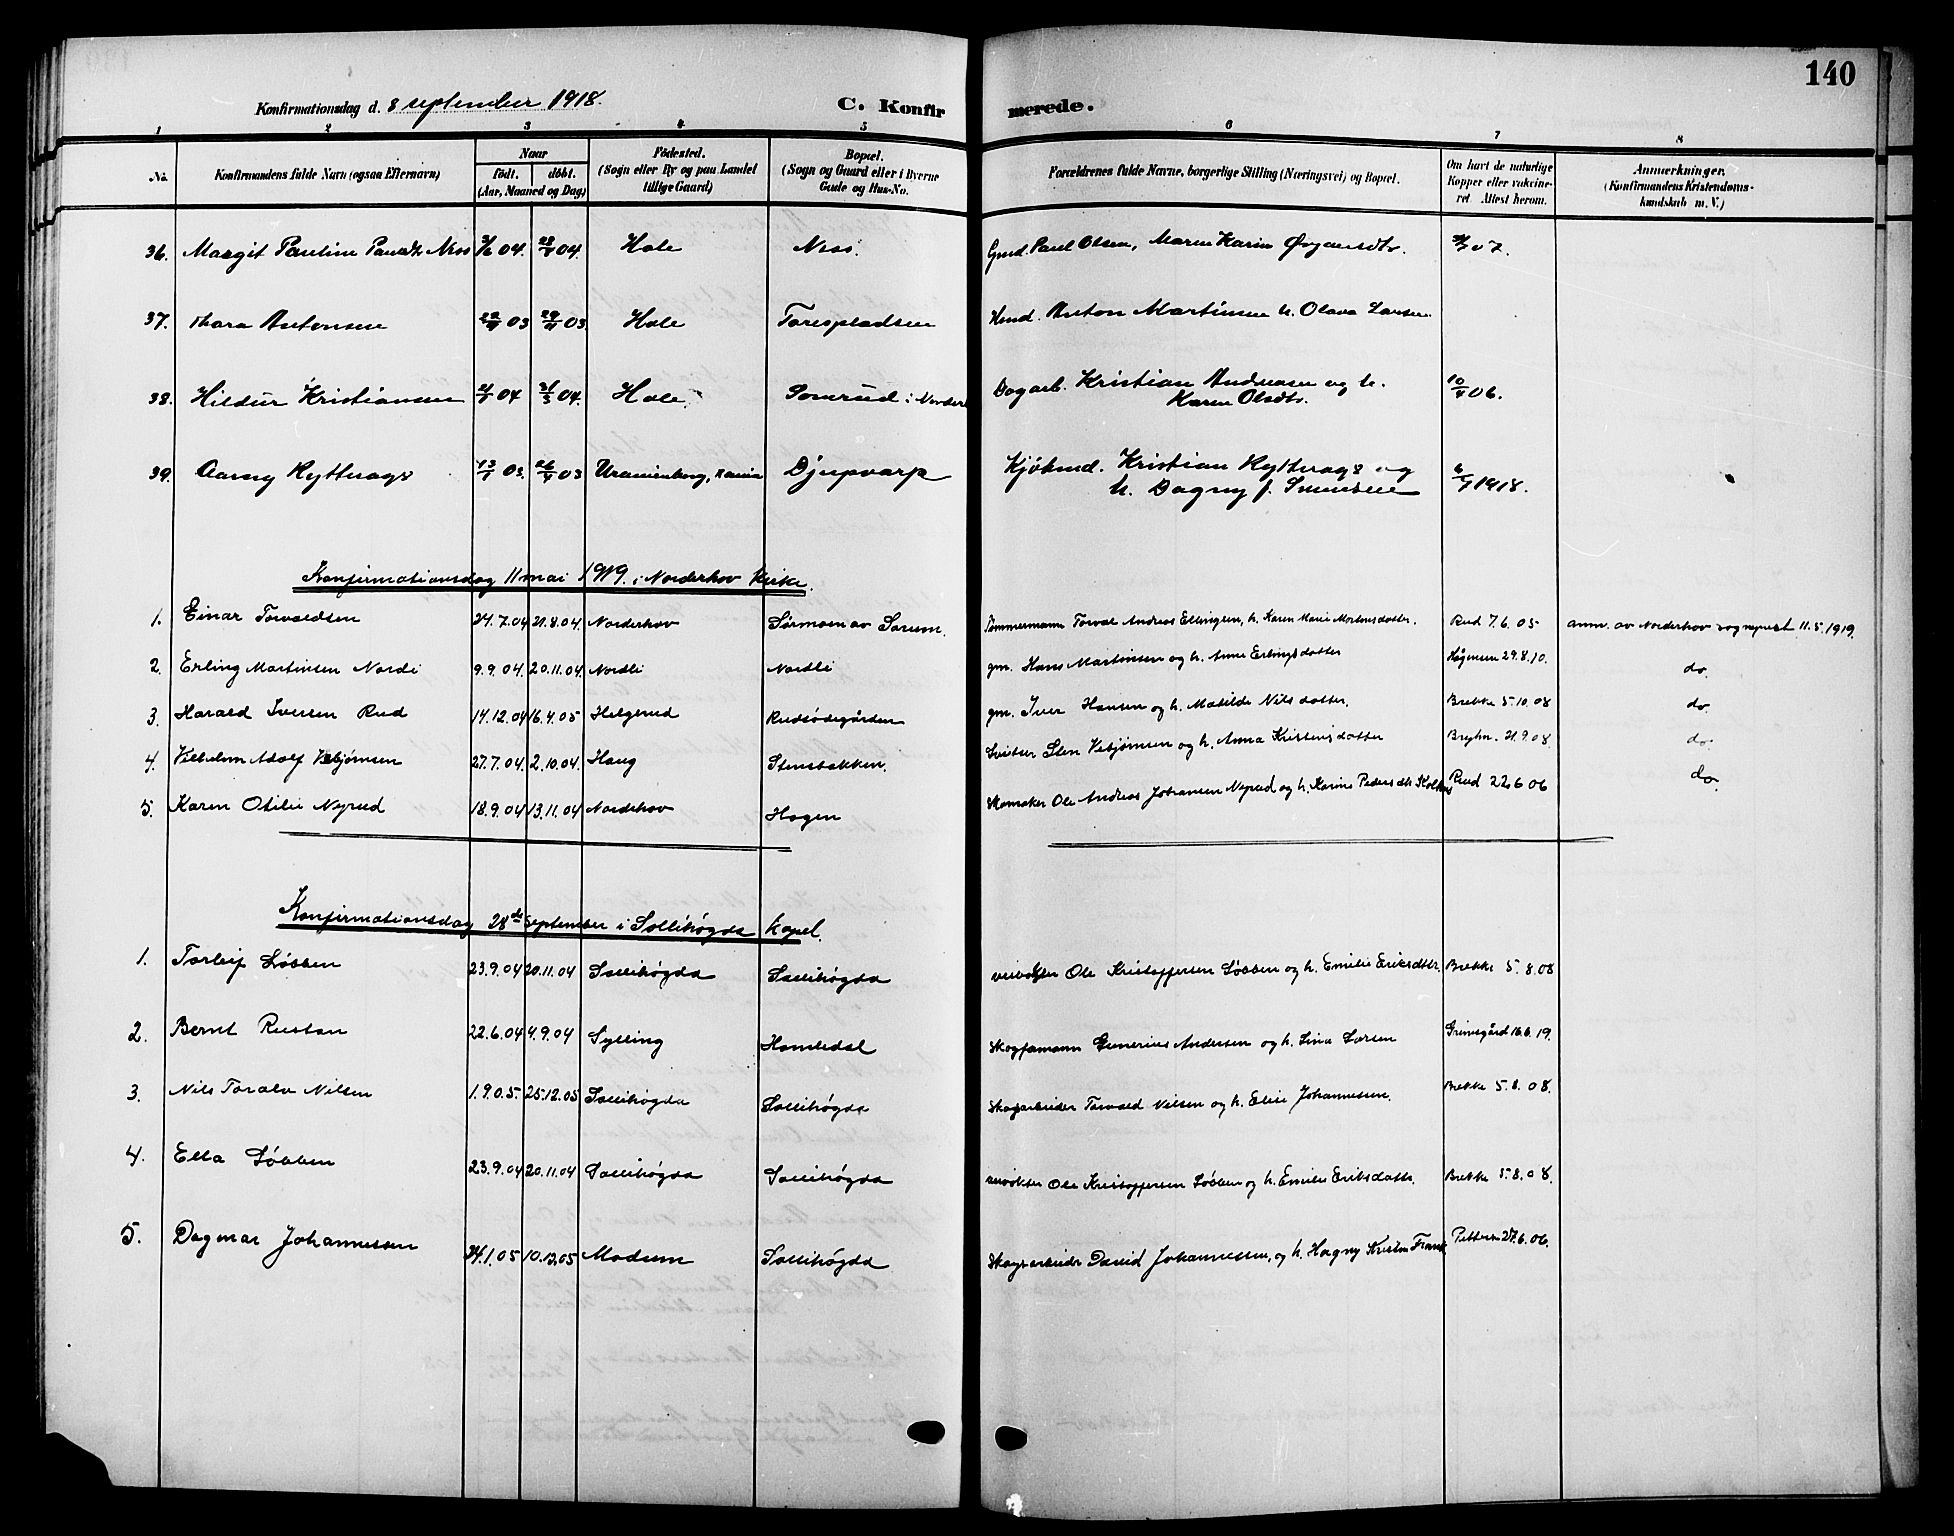 140
Konfirmationsdag d. 8 september 1918.
C. Konfirmerede.
1 2 3 4 5 6 7 8
No. Konfirmandens fulde Navn (ogsaa Efternavn) Naar født. døbt. (Aar, Maaned og Dag) Fødested. (Sogn eller By og paa Landet tillige Gaard) Bopæl. (Sogn og Gaard eller i Byerne Gade og Hus-No. Forældrenes fulde Navne, borgerlige Stilling (Næringsvei) og Bopæl. Om havt de naturlige Kopper eller vakcineret. Attest herom. Anmerkninger. (Konfirmandens Kristendomskundskab m. V.)
36. Margit Pauline Næs 04. 04. Hole Næs. Gmd. Paul Olsen, Maren Karin 07.
37. Thora Antonsen 03 03. Hole Torespladsen Hmd. Anton Martinsen h. Olava Larsen
38. Hildur Kristiansen 04 04. Hole. Somrud i Norder Dagarb. Kristian Andreasen og h. 10/ 06.
Karen Olsdtr.
39. Aarny Rytterager 03. 03 Uranienborg, Djupvarp Kjøbmd. Kristian Rytterager og 1918.
h. Dagny f. Svensen
Konfirmationsdag 11 mai 1919. i Norderhov Kirke.
1. Einar Torvaldsen 24.7.04 21.8.04. Norderhov Sørmoen av Sorum. Tømmermann Torval Andreas Ellingsen, h. Karen Marie Mortensdatter. Rud 7.6.05 anm. av Norderhov sogneprest 11.5.1919.
2. Erling Martinsen Nordi 9.9.04. 20.11.04. Nordli Nordli gm. Hans Martinsen og h. Anne Erlingsdatter Høgensen 29.8.10. do.
3. Harald Iversen Rud 14.12.04 16.4.05 Helgerud Rudsødegården gm. Iver Hansen og h. Matilde Nilsdatter. Brekke 5.10.08 do.
4. Vilhelm Adolf Vebjørnsen 27.7.04. 2.10.04. Haug Stensbakken. Sveitser Sten Vebjørnsen og h. Anna Kristensdatter 21.9.08. do.
5. Karen Otilie Nyrud 18.9.04 13.11.04 Norderhov Hagen Skomaker Ole Andreas Johansen Nyrud og h. Karine Pedersdtr. Rud 22.6.06 do.
Konfirmationsdag 28de september i Sollihøgda kapel.
1. Torleif Løbben 23.9.04 20.11.04 Sollihøgda Sollihøgda veivokter Ole Kristoffersen Løbben og h. Emilie Eriksdatr. Brekke 5.8.08
2. Bernt Rustan 22.6.04 4.9.04 Sylling Homledal Skogfamann Gunerius Andersen og h. Lina Larsen Grinisgård 16.6.19.
3. Nils Toralv Nilsen 1.9.05. 25.12.05 Sollihøgda Sollihøgda Skogarbeider Torvald Nilsen og h. Elise Johannessen. Brekke 5.8.08.
4. Ella Løbben 23.9.04 20.11.04 Sollihøgda Sollihøgda veivokter Ole Kristoffersen Løbben og h. Emilie Eriksdatr. Brekke 5.8.08.
5. Dagmar Johannessen 24.1.05 10.12.05 Modum Sollihøgda Skogsarbeider David Johannessen, og h. Hagny Kristin Frank Pettersn 27.6.06.